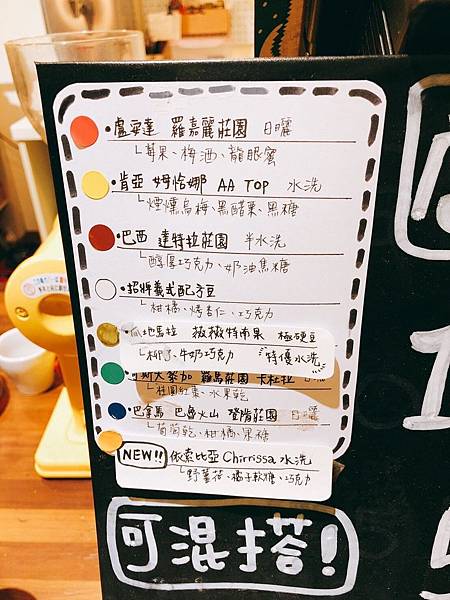 •盧安達 羅嘉麗莊園 日曬
└莓果、梅酒、龍眼蜜
•肯亞 姆恰娜 AA TOP 水洗
└煙燻烏梅、黑醋栗、黑糖
•巴西 達特拉莊園 半水洗
└醇厚巧克力、奶油焦糖
•招牌義式配方豆
└柑橘、烤杏仁、巧克力
•瓜地馬拉 薇薇特南果 極硬豆
└柳丁、牛奶巧克力 特優水洗
哥斯大黎加 羅馬莊園 卡杜拉
└桂圓紅棗、水果乾
•巴拿馬 巴魯火山 瑩脂莊園 日曬
└葡萄乾、柑橘、果糖
NEW!! 依索比亞 Chirrissa 水洗
└野薑花、橘子軟糖、巧克力
可混搭!